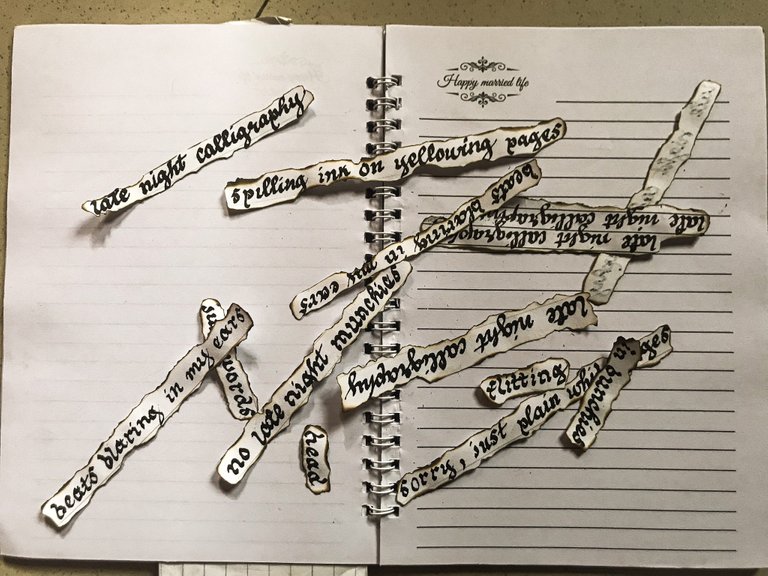 Happy married life
late night calligraphy
spilling ink on yellowing pages
beats blaring in my ears
late night calligraphy
late night calligraphy
late night calligraphy
no late night munchies
beats blaring in my ears
words
head
sorry, just plain
in bunches